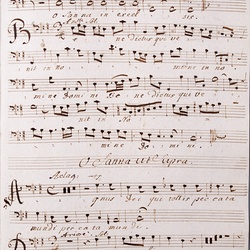 O Sanna in excel sis.
Be ne dictus qui ve
nit in no mine in no
mine Domini Be ne dictus qui ve
nit in No
mi ne Do mi ni.
O Sanna ut supra.
Adag.
A gnus Dei qui tollis pec cata
mundi pec cata mun di.